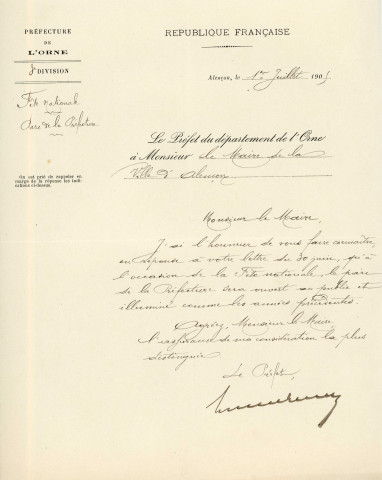 PRÉFECTURE
DE
L'ORNE
3e DIVISION
Fête nationale
Parc de la Préfecture
On est prié de rappeler en
marge de la réponse les indi-
cations ci-dessus.
RÉPUBLIQUE FRANÇAISE
Alençon, le 1er Juillet 1905
Le Préfet du département de l'Orne
à Monsieur le Maire de la
Ville d'Alençon
Monsieur le Maire,
J'ai l'honneur de vous faire connaître,
en réponse à votre lettre du 30 juin, qu'à
l'occasion de la Fête nationale, le parc
de la Préfecture sera ouvert au public et
illuminé comme les années précédentes.
Agréez, Monsieur le Maire
l'assurance de ma considération la plus
distinguée
Le Préfet,